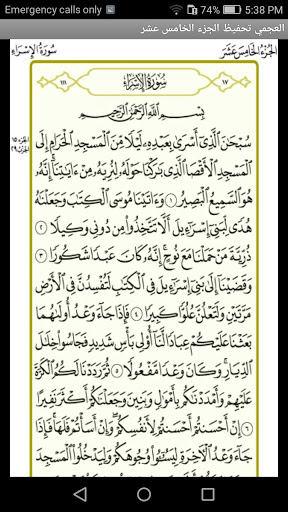 Emergency calls only 5:38 PM
العجمي تحفيظ الجزء الخامس عشر
سُورَةُ الإِسْرَاءِ الجُزْءُ الخَامِسَ عَشَرَ
سُورَةُ الإِسْرَاءِ
بِسْمِ اللَّهِ الرَّحْمَٰنِ الرَّحِيمِ
سُبْحَٰنَ الَّذِي أَسْرَىٰ بِعَبْدِهِ لَيْلًا مِّنَ الْمَسْجِدِ الْحَرَامِ إِلَى
الْمَسْجِدِ الْأَقْصَا الَّذِي بَٰرَكْنَا حَوْلَهُ لِنُرِيَهُ مِنْ ءَايَٰتِنَا إِنَّهُ
هُوَ السَّمِيعُ الْبَصِيرُ ١ وَءَاتَيْنَا مُوسَى الْكِتَٰبَ وَجَعَلْنَٰهُ
هُدًى لِّبَنِي إِسْرَٰٓءِيلَ أَلَّا تَتَّخِذُوا مِن دُونِي وَكِيلًا ٢
ذُرِّيَّةَ مَنْ حَمَلْنَا مَعَ نُوحٍ إِنَّهُ كَانَ عَبْدًا شَكُورًا ٣
وَقَضَيْنَا إِلَىٰ بَنِي إِسْرَٰٓءِيلَ فِي الْكِتَٰبِ لَتُفْسِدُنَّ فِي الْأَرْضِ
مَرَّتَيْنِ وَلَتَعْلُنَّ عُلُوًّا كَبِيرًا ٤ فَإِذَا جَاءَ وَعْدُ أُولَىٰهُمَا
بَعَثْنَا عَلَيْكُمْ عِبَادًا لَّنَا أُولِي بَأْسٍ شَدِيدٍ فَجَاسُوا خِلَٰلَ
الدِّيَارِ وَكَانَ وَعْدًا مَّفْعُولًا ٥ ثُمَّ رَدَدْنَا لَكُمُ الْكَرَّةَ
عَلَيْهِمْ وَأَمْدَدْنَٰكُم بِأَمْوَٰلٍ وَبَنِينَ وَجَعَلْنَٰكُمْ أَكْثَرَ نَفِيرًا
٦ إِنْ أَحْسَنتُمْ أَحْسَنتُمْ لِأَنفُسِكُمْ وَإِنْ أَسَأْتُمْ فَلَهَا فَإِذَا
جَاءَ وَعْدُ الْآخِرَةِ لِيَسُۥٓـُٔوا وُجُوهَكُمْ وَلِيَدْخُلُوا الْمَسْجِدَ